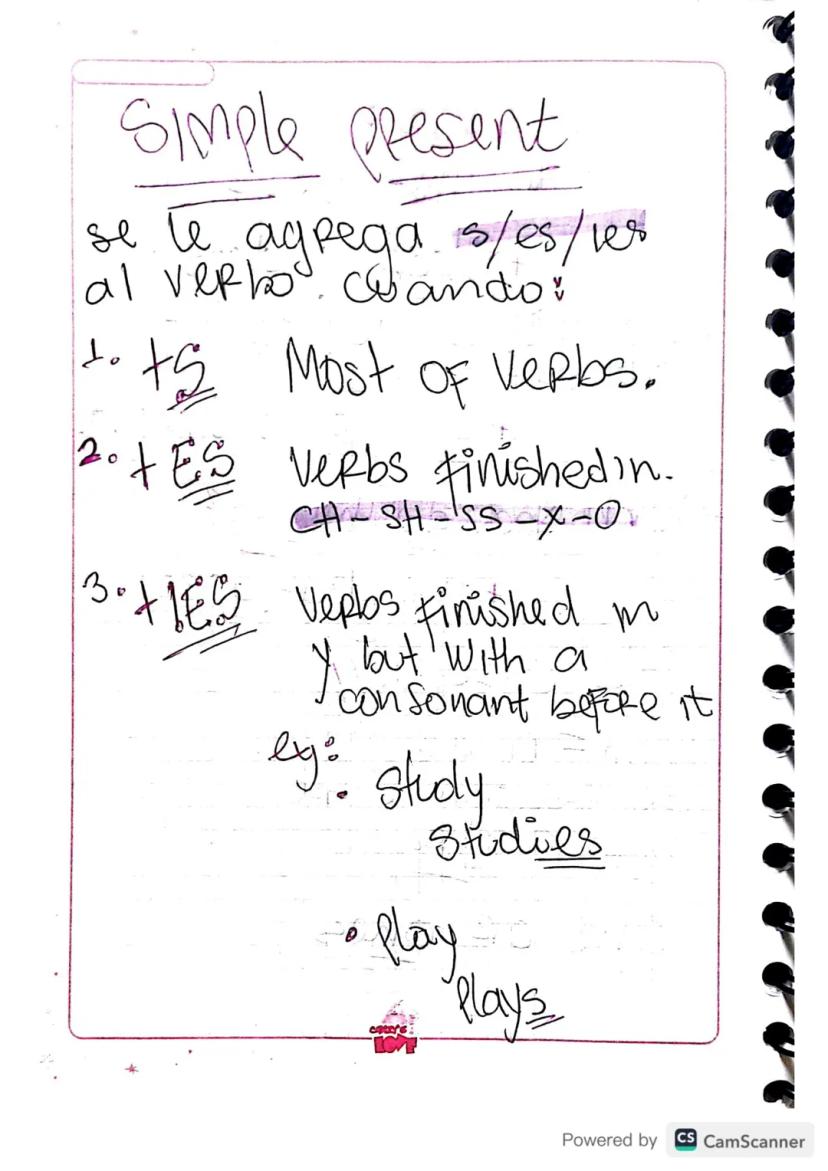 Simple present
se le agrega s/es/ies
al verbo cuando:
1. +S Most of verbs.
2. +ES Verbs finished in.
CH - SH - SS - X - O.
3. +IES Verbs finished in
y but with a
consonant before it
eg:
• study
studies
• play
plays
LOVE
Powered by CS CamScanner